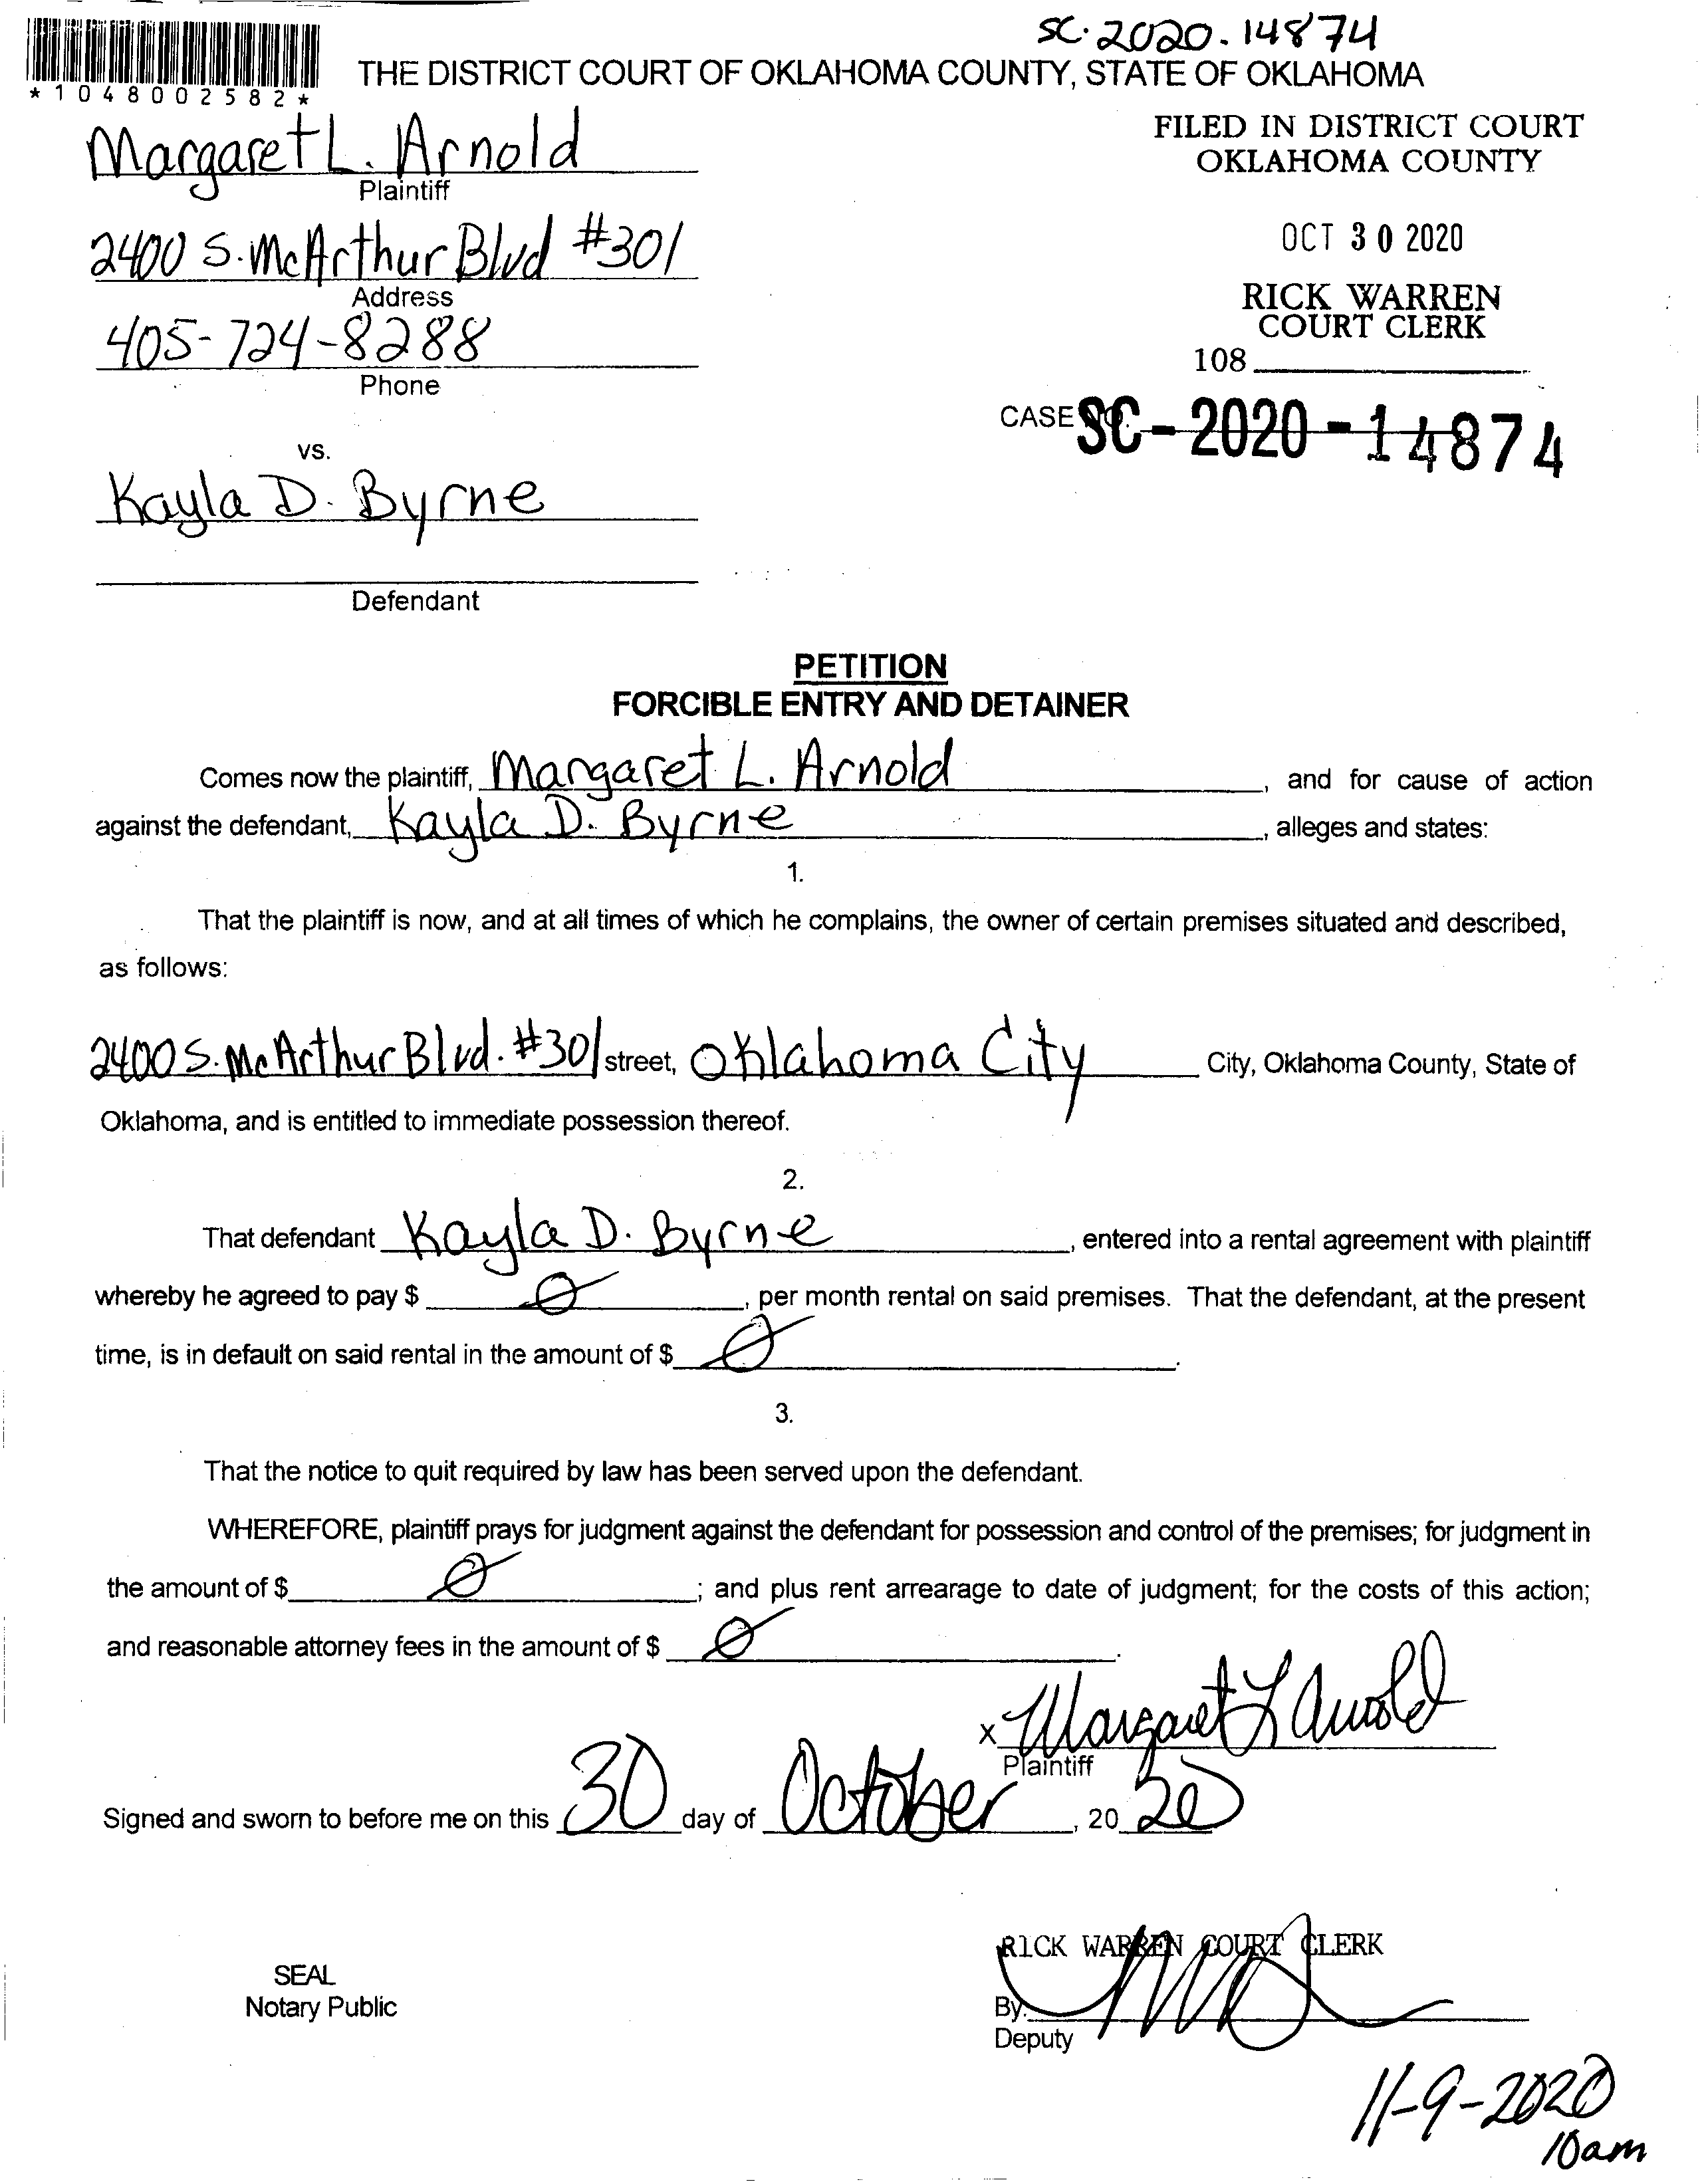 SC. 2020. 14874
*1048002582*
THE DISTRICT COURT OF OKLAHOMA COUNTY, STATE OF OKLAHOMA
Margaret L. Arnold
Plaintiff
FILED IN DISTRICT COURT
OKLAHOMA COUNTY
2400 S. McArthur Blvd #301
Address
OCT 30 2020
405-724-8288
Phone
RICK WARREN
COURT CLERK
108
CASE NO. SC-2020-14874
vs.
Kayla D. Byrne
Defendant
PETITION
FORCIBLE ENTRY AND DETAINER
Comes now the plaintiff, Margaret L. Arnold, and for cause of action
against the defendant, Kayla D. Byrne, alleges and states:
1.
That the plaintiff is now, and at all times of which he complains, the owner of certain premises situated and described,
as follows:
2400 S. McArthur Blvd. #301 street, Oklahoma City City, Oklahoma County, State of
Oklahoma, and is entitled to immediate possession thereof.
2.
That defendant Kayla D. Byrne, entered into a rental agreement with plaintiff
whereby he agreed to pay $ Ø, per month rental on said premises. That the defendant, at the present
time, is in default on said rental in the amount of $ Ø.
3.
That the notice to quit required by law has been served upon the defendant.
WHEREFORE, plaintiff prays for judgment against the defendant for possession and control of the premises; for judgment in
the amount of $ Ø; and plus rent arrearage to date of judgment; for the costs of this action;
and reasonable attorney fees in the amount of $ Ø.
x Margaret L Arnold
Plaintiff
Signed and sworn to before me on this 30 day of October, 20 20
RICK WARREN COURT CLERK
SEAL
Notary Public
By:
Deputy
11-9-2020
10am